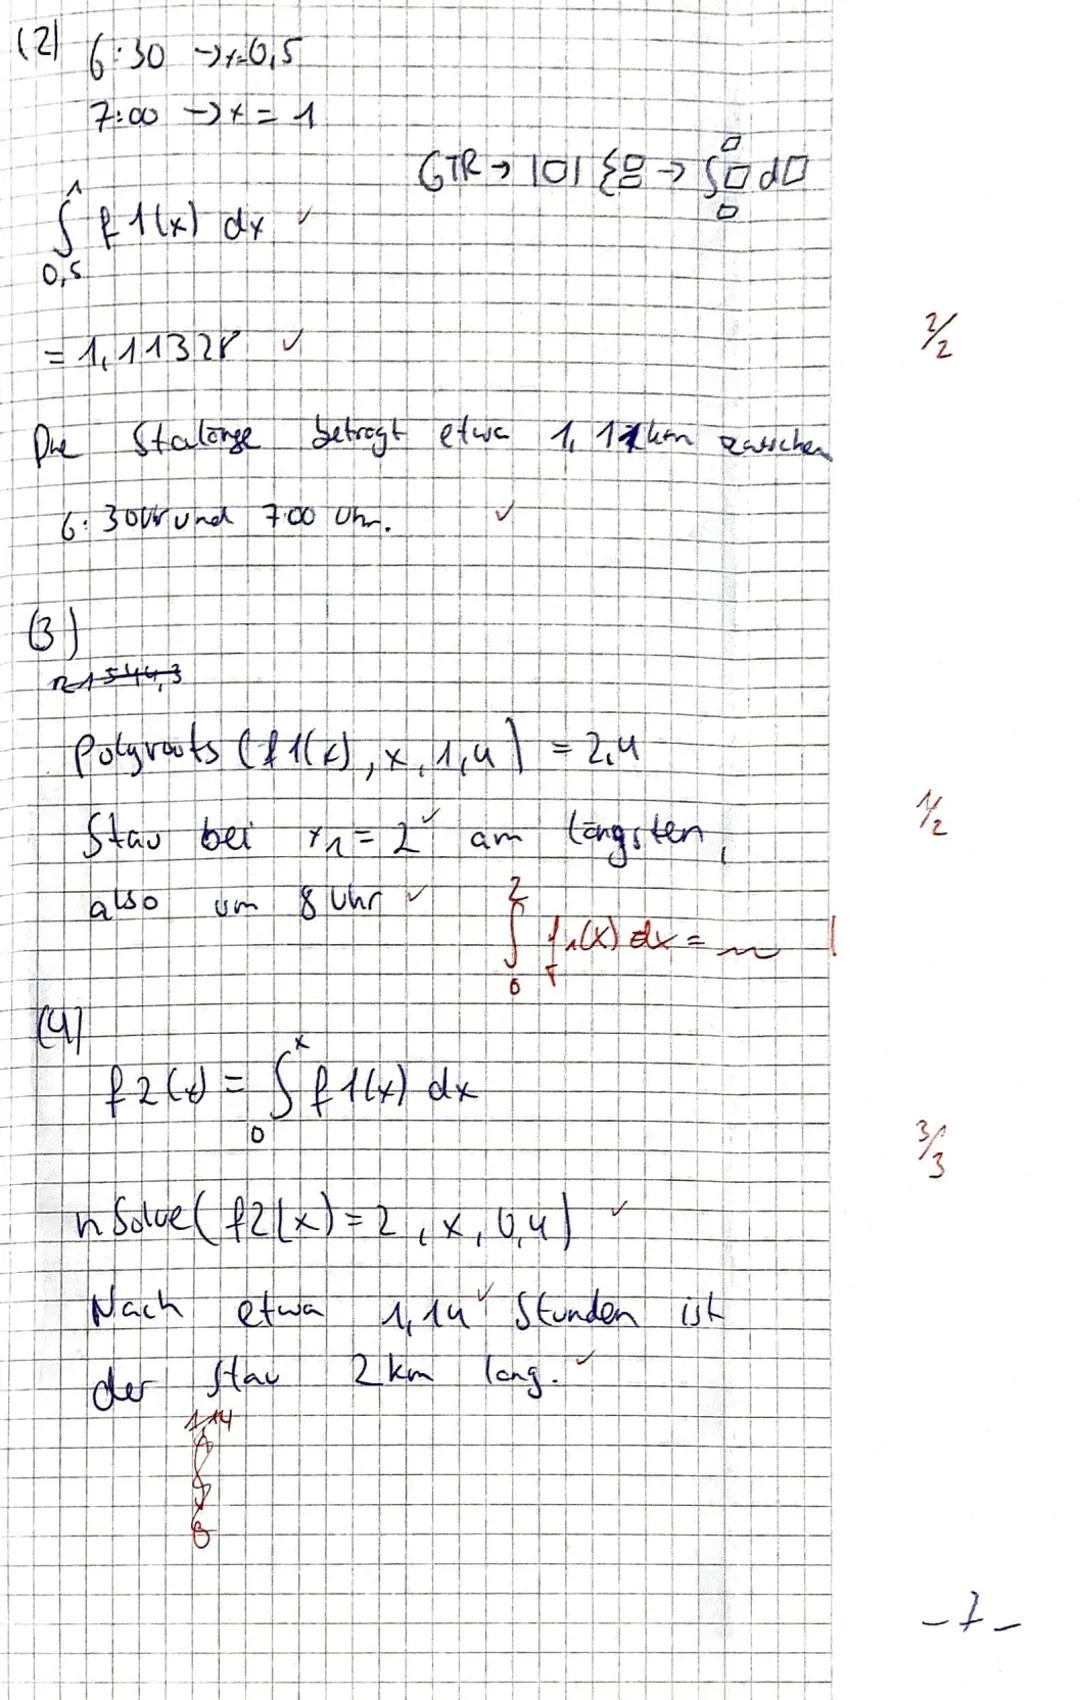 (2) 6:30 → x=0,5
7:00 → x = 1
GTR → |□| {□ → ∫□ d□
1
∫ f1(x) dx ✓
0,5
= 1,11328 ✓
2/2
Die Stalänge beträgt etwa 1,11km zwischen
6:30Uhr und 7:00 Uhr. ✓
(3)
polyroots (f1(x), x, 1,4) = 2,4
Stau bei x1 = 2 ✓ am längsten,
1/2
also um 8 Uhr ✓
2
∫ f1(x) dx = ~ !
0
(4)
x
f2(x) = ∫ f1(x) dx
0
3/3
nSolve( f2(x) = 2, x, 0,4) ✓
Nach etwa 1,14 ✓ Stunden ist
der Stau 2 km lang. ✓
1,14
∫
0